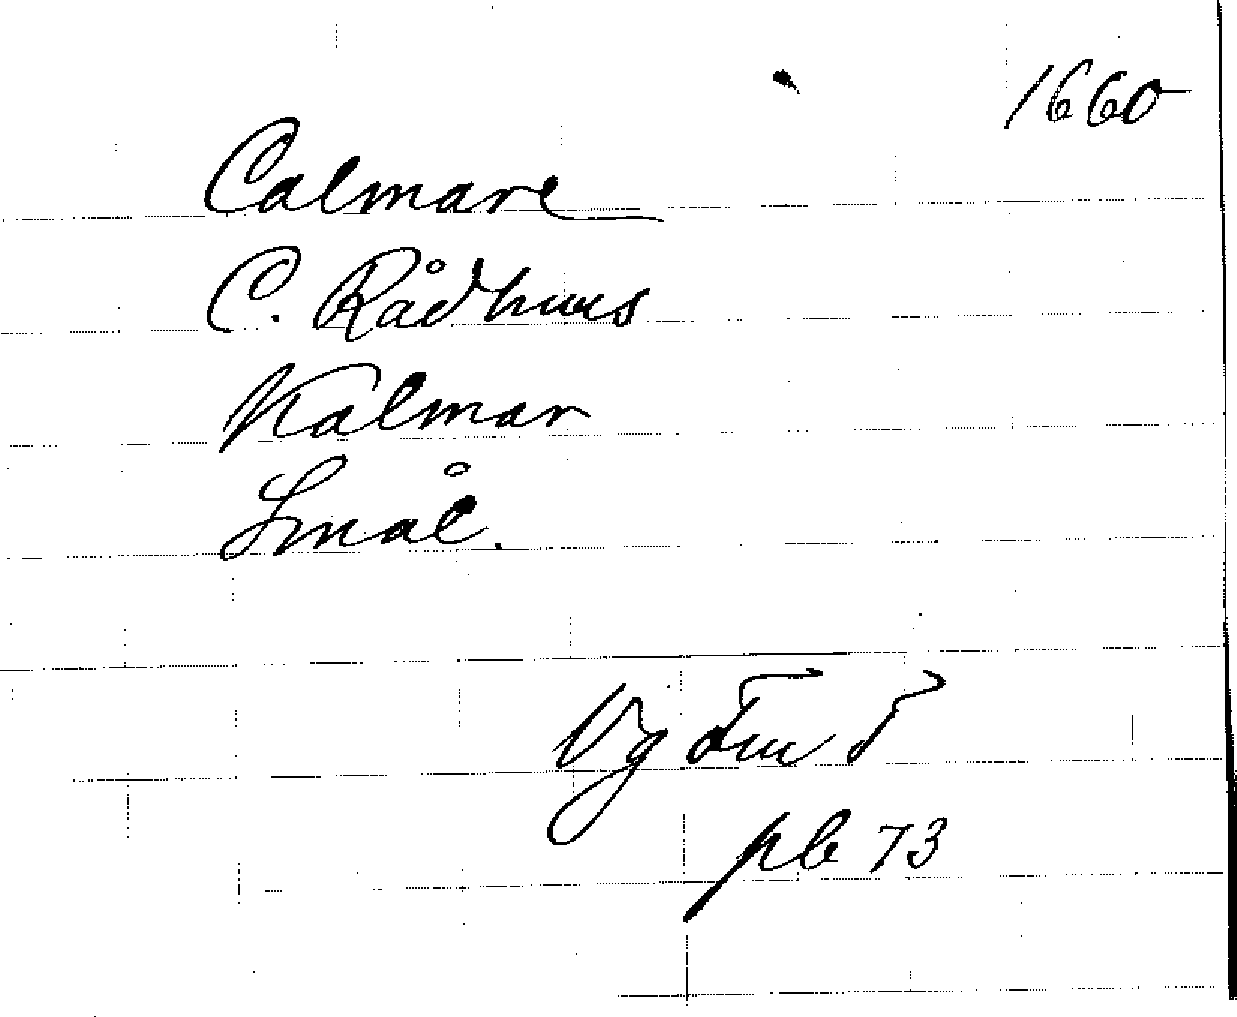 1660
Calmare
C. Rådhuus
Kalmar
Smål.
Vg
pb 73